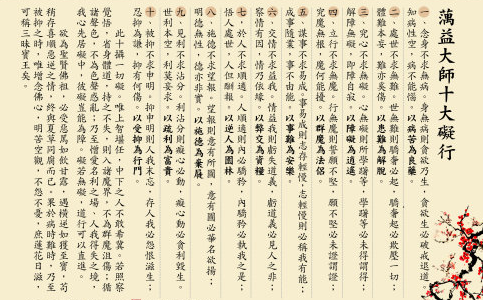 蕅益大師十大礙行
一、念身不求無病。身無病則貪欲乃生，貪欲生必破戒退道。
知病性空，病不能惱，以病苦為良藥。
二、處世不求無難。世無難則驕奢必起，驕奢起必欺壓一切；
體難本妄，難亦奚傷，以患難為解脫。
三、究心不求無障。心無障則所學躐等，學躐等必未得謂得；
解障無礙，即障自寂，以障礙為逍遙。
四、立行不求無魔。行無魔則誓願不堅，願不堅必未證謂證；
究魔無根，魔何能擾，以群魔為法侶。
五、謀事不求易成。事易成則志存輕慢，志輕慢則必稱我有能；
成事隨業，事不由能，以事難為安樂。
六、交情不求益我。情益我則虧失道義，虧道義必見人之非；
察情有因，情乃依緣，以弊交為資糧。
七、於人不求順適。人順適則內心驕矜，內驕矜必執我之是；
悟人處世，人但酬報，以逆人為園林。
八、施德不求望報。德望報則意有所圖，意有圖必華名欲揚；
明德無性，德亦非實，以施德為棄屣。
九、見利不求沾分。利沾分則癡心必動，癡心動必貪利毀生。
世利本空，利莫妄求，以疏利為富貴。
十、被抑不求申明。抑申明則人我未忘，存人我必怨恨滋生；
忍抑為謙，抑有何傷，以受抑為行門。
此十攝一切礙。唯上智堪任，中下之人不敢希冀。若照察
覺悟，省身體道，持之不失，則入諸魔界，不為群魔沮傷；循
諸聲色，不為色聲惑亂；乃至憎愛名利之場、人我得失之境，
我心先居礙中，彼礙豈能為障。礙若無礙，道行可以直進。
欲為聖賢佛祖，必受惡罵如飲甘露，遇橫逆如獲至寶，苟
稍存喜順惡逆之情，終與夏草同腐而已。果於病時難時，乃至
被抑之時，唯增念佛心，明苦空觀，不怨不憂，庶蓮花日滋，
可稱三昧寶王矣。